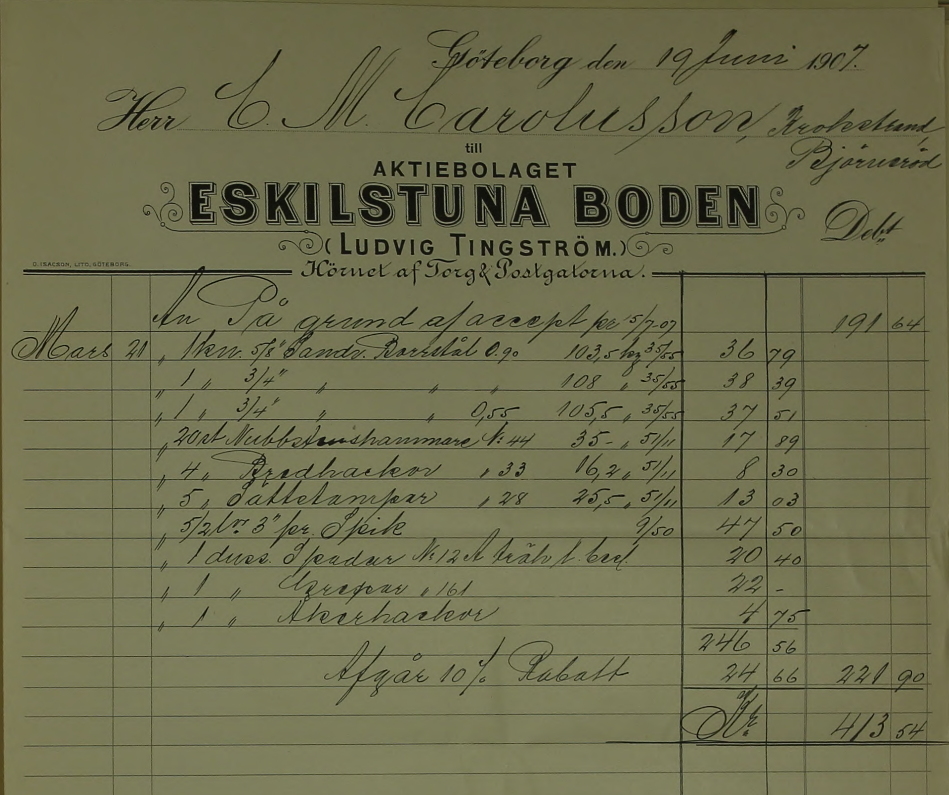 Göteborg den 19 Juni 1907.
Herr C. M. Carolusson, Krokstrand,
Björneröd
till
AKTIEBOLAGET
ESKILSTUNA BODEN
Debt
(LUDVIG TINGSTRÖM.)
Hörnet af Torg & Postgatorna.
O. ISACSON, LITO, GÖTEBORG.
An På grund af accept pr 15/7-07 191 64
Mars 21 " 1 kn. 5/8" Sandv. Borrstål 0.90 103,5 kg 35/55 36 79
" 1 " 3/4" " " " 108 " 35/55 38 39
" 1 " 3/4" " " 0,55 105,5 " 35/55 37 51
" 20 st Nubbstenshammare No 44 35- " 51/11 17 89
" 4 " Bredhackor " 33 16,2 " 51/11 8 30
" 5 " Sättstampar " 28 25,5 " 51/11 13 03
" 5/2 3" pr. Spik 9/50 47 50
" 1 duss. Spadar No 12 A 20 40
" 1 " Grepar " 161 22 -
" 1 " Åkerhackor 4 75
246 56
Afgår 10% Rabatt 24 66 221 90
Kr. 413 54